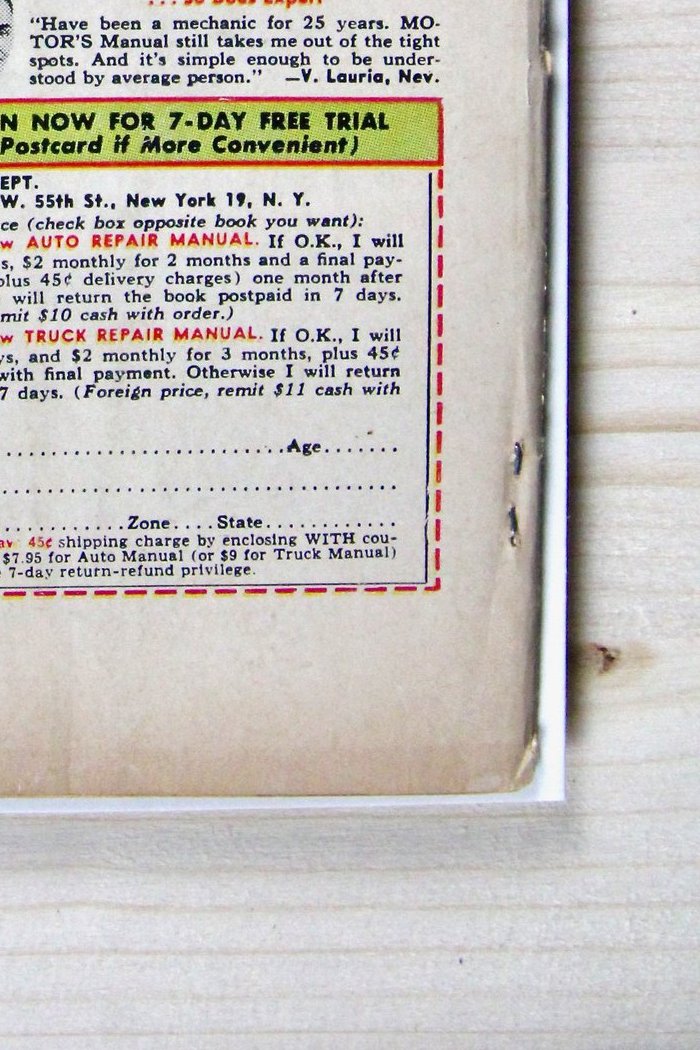 ... So Does Expert
“Have been a mechanic for 25 years. MO-
TOR'S Manual still takes me out of the tight
spots. And it's simple enough to be under-
stood by average person.” —V. Lauria, Nev.
N NOW FOR 7-DAY FREE TRIAL
Postcard if More Convenient)
EPT.
W. 55th St., New York 19, N. Y.
ce (check box opposite book you want):
w AUTO REPAIR MANUAL. If O.K., I will
s, $2 monthly for 2 months and a final pay-
plus 45¢ delivery charges) one month after
will return the book postpaid in 7 days.
mit $10 cash with order.)
w TRUCK REPAIR MANUAL. If O.K., I will
ys, and $2 monthly for 3 months, plus 45¢
with final payment. Otherwise I will return
7 days. (Foreign price, remit $11 cash with
Age
Zone.... State
av 45¢ shipping charge by enclosing WITH cou-
$7.95 for Auto Manual (or $9 for Truck Manual)
7-day return-refund privilege.